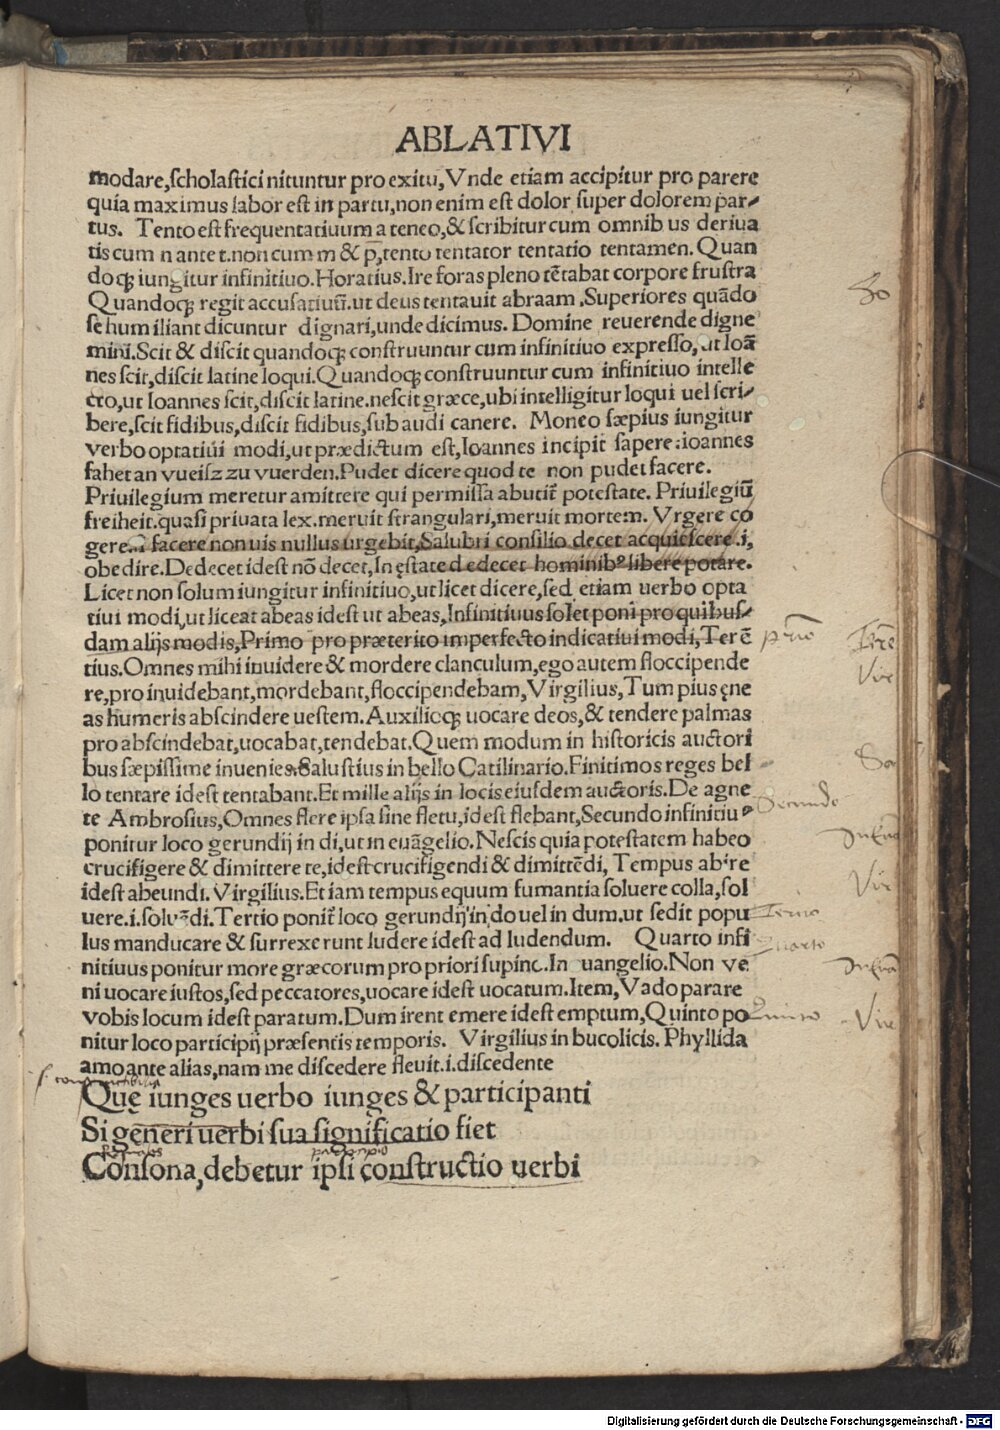 ABLATIVI
modare,scholastici nituntur pro exitu,Vnde etiam accipitur pro parere
quia maximus labor est in partu,non enim est dolor super dolorem par-
tus. Tento est frequentatiuum a teneo,& scribitur cum omnib us deriua
tis cum n ante t.non cum m & p,tento tentator tentatio tentamen.Quan
doqꝫ iungitur infinitiuo.Horatius.Ire foras pleno tētabat corpore frustra
Quandoqꝫ regit accusatiuū.ut deus tentauit abraam.Superiores quādo
se hum iliant dicuntur dignari,unde dicimus. Domine reuerende digne
mini.Scit & discit quandoqꝫ construuntur cum infinitiuo expresso,ut Ioā
nes scit,discit latine loqui.Quandoqꝫ construuntur cum infinitiuo intelle
cto,ut Ioannes scit,discit latine.nescit græce,ubi intelligitur loqui uel scri-
bere,scit fidibus,discit fidibus,sub audi canere. Moneo sæpius iungitur
verbo optatiui modi,ut prædictum est,Ioannes incipit sapere:ioannes
fahet an vueisz zu vuerden.Pudet dicere quod te non pudet facere.
Priuilegium meretur amittere qui permissa abutit̄ potestate. Priuilegiū
freiheit.quasi priuata lex.meruit strangulari,meruit mortem. Vrgere co
gere.i facere non uis nullus urgebit,Salubri consilio decet acquiescere.i,
obedire.Dedecet idest nō decet,In ęstate dedecet hominibꝰ libere potare.
Licet non solum iungitur infinitiuo,ut licet dicere,sed etiam uerbo opta
tiui modi,ut liceat abeas idest ut abeas,Infinitiuus solet poni pro quibus-
dam alijs modis,Primo pro præterito imperfecto indicatiui modi,Terē
tius.Omnes mihi inuidere & mordere clanculum,ego autem floccipende
re,pro inuidebant,mordebant,floccipendebam,Virgilius,Tum pius ęne
as humeris abscindere uestem.Auxilioqꝫ uocare deos,& tendere palmas
pro abscindebat,uocabat,tendebat.Quem modum in historicis auctori
bus sæpissime inuenies.Salustius in bello Catilinario.Finitimos reges bel
lo tentare idest tentabant.Et mille alijs in locis eiusdem auctoris.De agne
te Ambrosius,Omnes flere ipsa sine fletu,idest flebant,Secundo infinitiuꝰ
ponitur loco gerundij in di,ut in euāgelio.Nescis quia potestatem habeo
crucifigere & dimittere te,idest crucifigendi & dimittēdi, Tempus abire
idest abeundi.Virgilius.Et iam tempus equum fumantia soluere colla,sol
uere.i.soluēdi.Tertio ponit̄ loco gerundij in do uel in dum.ut sedit popu
lus manducare & surrexerunt ludere idest ad ludendum. Quarto infi
nitiuus ponitur more græcorum pro priori supino.In euangelio.Non ve
ni uocare iustos,sed peccatores,uocare idest uocatum.Item,Vado parare
vobis locum idest paratum.Dum irent emere idest emptum,Quinto po
nitur loco participij præsentis temporis. Virgilius in bucolicis. Phyllida
amo ante alias,nam me discedere fleuit.i.discedente
Quę iunges uerbo iunges & participanti
Si generi uerbi sua significatio fiet
Consona,debetur ipsi constructio uerbi
primo
Secundo
Tertio
Quarto
Quinto
Digitalisierung gefördert durch die Deutsche Forschungsgemeinschaft - DFG